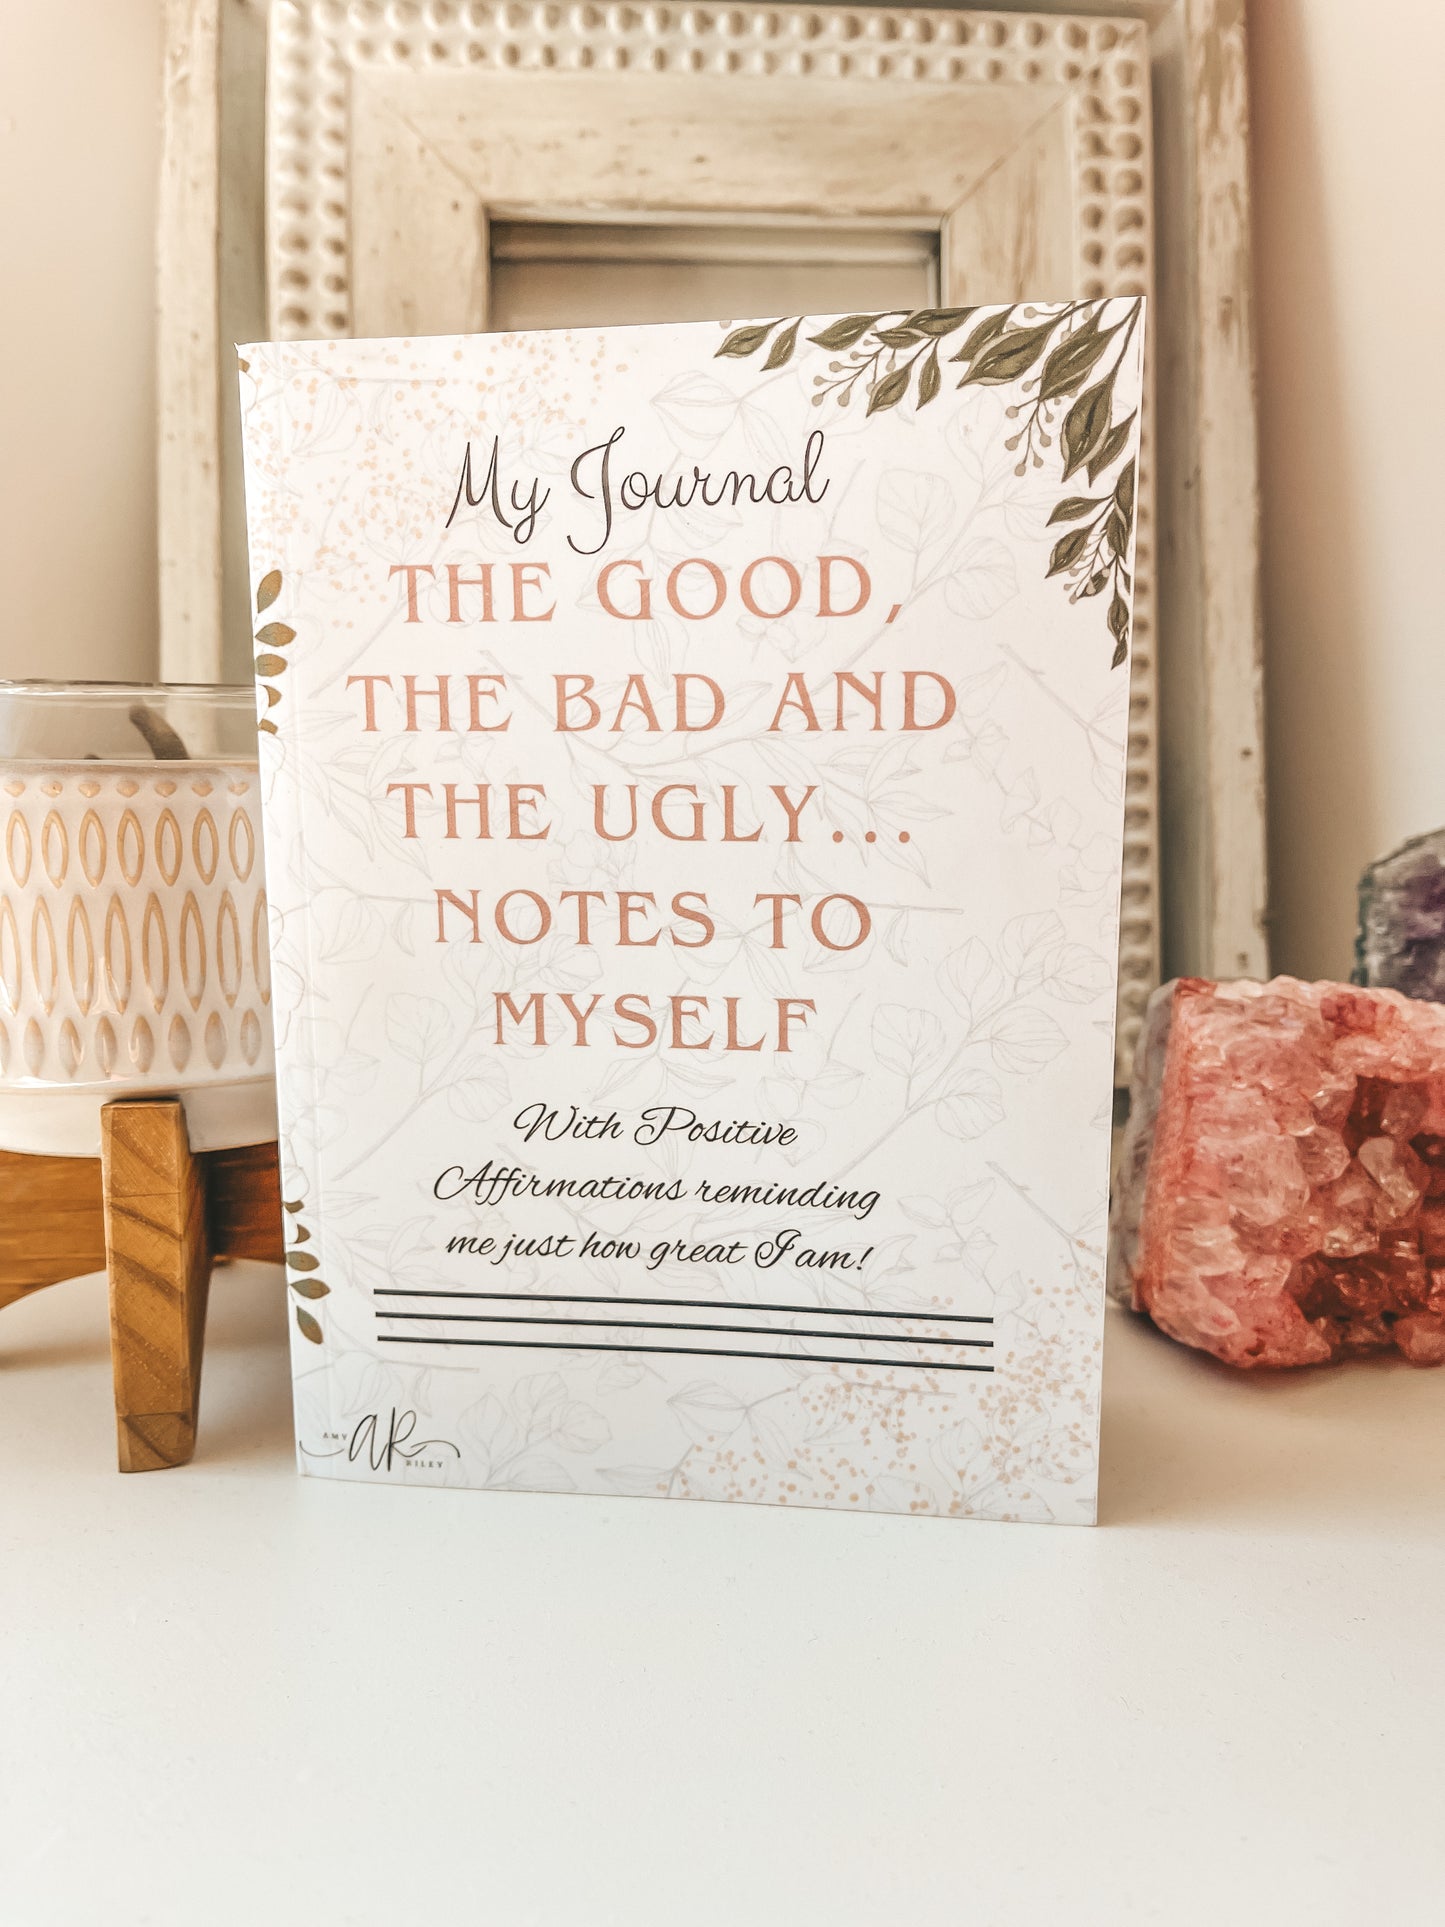 My Journal
THE GOOD,
THE BAD AND
THE UGLY...
NOTES TO
MYSELF
With Positive
Affirmations reminding
me just how great I am!
AMY AR RILEY